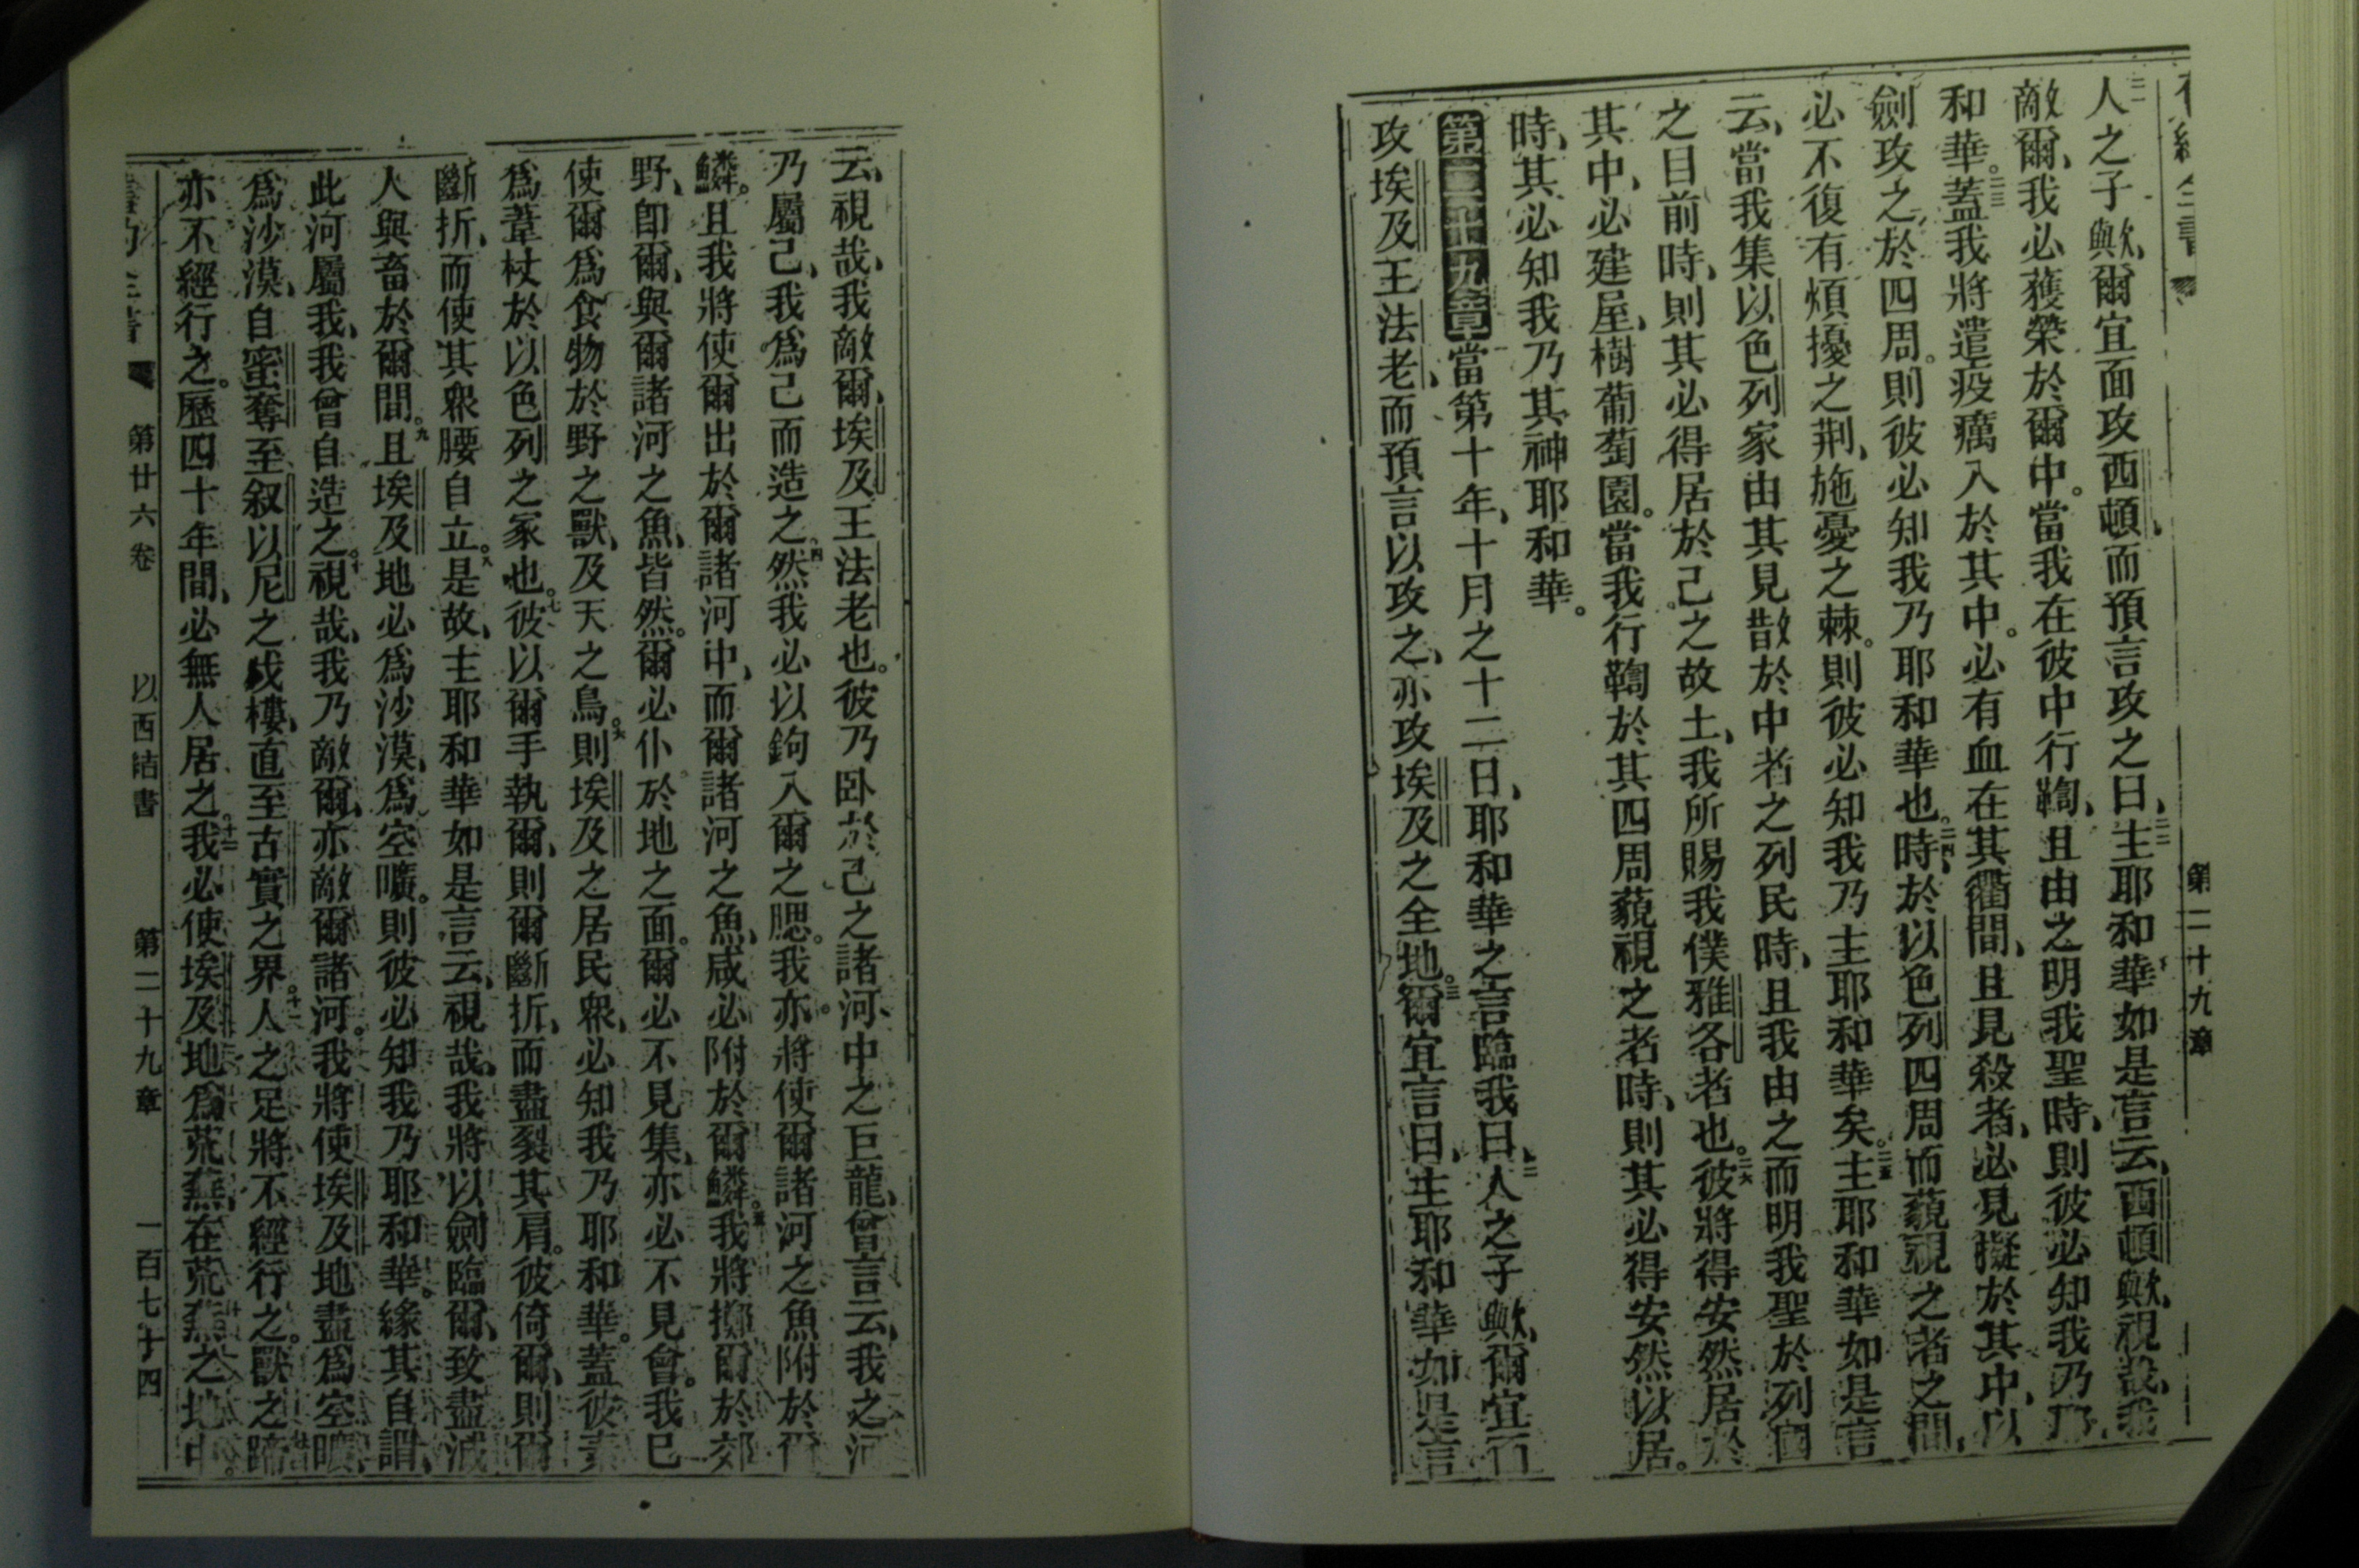 第二十九章
人之子歟、爾宜面攻西頓、而預言攻之曰、主耶和華如是言云、西頓歟、視哉、我
敵爾、我必獲榮於爾中。當我在彼中行鞫、且由之明我聖時、則彼必知我乃耶
和華。蓋我將遣疫癘入於其中。必有血在其衢間、且見殺者、必見擬於其中、以
劍攻之於四周。則彼必知我乃耶和華也。時、於以色列四周而藐視之者之間、
必不復有煩擾之荆、施憂之棘。則彼必知我乃主耶和華矣。主耶和華如是言
云、當我集以色列家由其見散於中者之列民時、且我由之而明我聖於列國
之目前時、則其必得居於己之故土、我所賜我僕雅各者也。彼將得安然居於
其中、必建屋、樹葡萄園。當我行鞫於其四周藐視之者時、則其必得安然以居。
時、其必知我乃其神耶和華。
第二十九章當第十年、十月之十二日、耶和華之言臨我曰、人之子歟、爾宜面
攻埃及王法老、而預言以攻之、亦攻埃及之全地。爾宜言曰、主耶和華如是言
云、視哉、我敵爾、埃及王法老也。彼乃卧於己之諸河中之巨龍、曾言云、我之河
乃屬己、我爲己而造之。然我必以鉤入爾之腮。我亦將使爾諸河之魚附於爾
鱗。且我將使爾出於爾諸河中、而爾諸河之魚、咸必附於爾鱗。我將擲爾於郊
野、卽爾、與爾諸河之魚、皆然。爾必仆於地之面。爾必不見集、亦必不見會。我已
使爾爲食物於野之獸、及天之鳥。則埃及之居民衆、必知我乃耶和華。蓋彼素
爲葦杖於以色列之家也。彼以爾手執爾、則爾斷折、而盡裂其肩。彼倚爾、則爾
斷折、而使其衆腰自立。是故、主耶和華如是言云、視哉、我將以劍臨爾、致盡滅
人與畜於爾間。且埃及地必爲沙漠、爲空曠。則彼必知我乃耶和華。緣其自謂、
此河屬我、我曾自造之。視哉、我乃敵爾、亦敵爾諸河。我將使埃及地盡爲空曠、
爲沙漠、自蜜奪至叙以尼之戍樓、直至古實之界。人之足將不經行之。獸之蹄
亦不經行之。歷四十年間、必無人居之。我必使埃及地爲荒蕪、在荒蕪之地中。
第廿六卷 以西結書 第二十九章 一百七十四